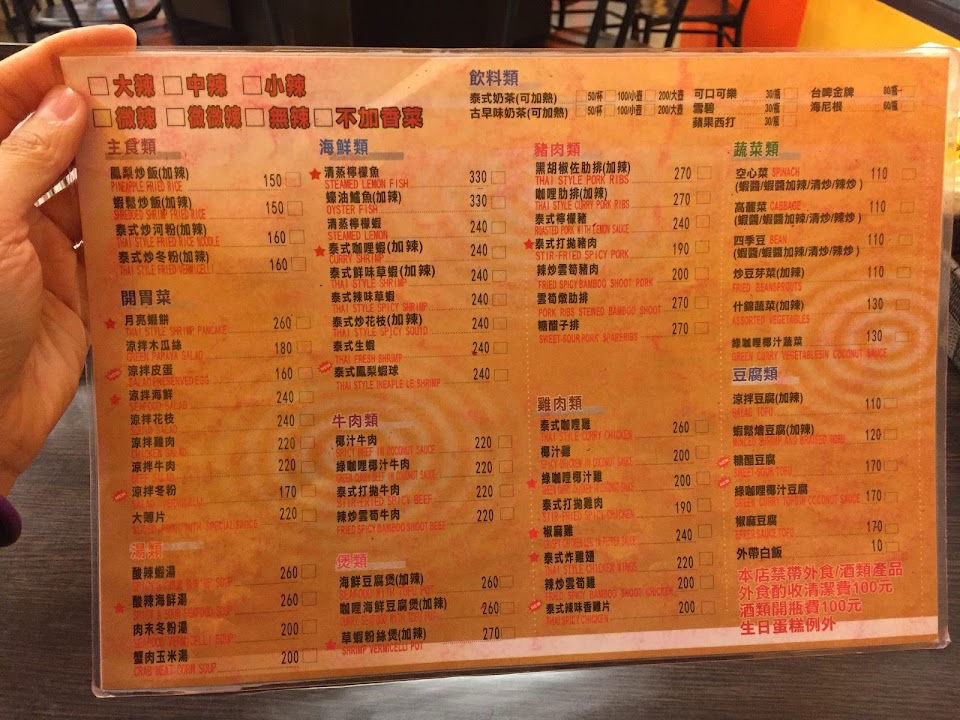 □大辣 □中辣 □小辣
□微辣 □微微辣 □無辣 □不加香菜
飲料類
泰式奶茶(可加熱) □50/杯 □100/小壺 □200/大壺
古早味奶茶(可加熱) □50/杯 □100/小壺 □200/大壺
可口可樂 30/瓶
雪碧 30/瓶
蘋果西打 30/瓶
台啤金牌 80/瓶
海尼根 90/瓶
主食類
鳳梨炒飯(加辣) 150
PINEAPPLE FRIED RICE
蝦鬆炒飯(加辣) 150
SHREDDED SHRIMP FRIED RICE
泰式炒河粉(加辣) 160
THAI STYLE FRIED RICE NOODLE
泰式炒冬粉(加辣) 160
THAI STYLE FRIED VERMICELLI
開胃菜
月亮蝦餅 260
THAI STYLE SHRIMP PANCAKE
涼拌木瓜絲 180
GREEN PAPAYA SALAD
涼拌皮蛋 160
SALAD PRESERVED EGG
涼拌海鮮 240
SEAFOOD SALAD
涼拌花枝 240
涼拌雞肉 220
CHICKEN SALAD
涼拌牛肉 220
涼拌冬粉 170
大薄片 220
WITH SPECIAL SAUCE
湯類
酸辣蝦湯 260
酸辣海鮮湯 260
肉末冬粉湯 200
蟹肉玉米湯 200
CRAB MEAT CORN SOUP
海鮮類
清蒸檸檬魚 330
STEAMED LEMON FISH
蠔油鱸魚(加辣) 330
OYSTER FISH
清蒸檸檬蝦 240
STEAMED LEMON
泰式咖哩蝦(加辣) 240
CURRY SHRIMP
泰式鮮味草蝦(加辣) 240
THAI STYLE SHRIMP
泰式辣味草蝦 240
THAI STYLE SPICY SHRIMP
泰式炒花枝(加辣) 240
THAI STYLE SPICY SQUID
泰式生蝦 240
THAI FRESH SHRIMP
泰式鳳梨蝦球 240
THAI STYLE INEAPLE LE SHRIMP
牛肉類
椰汁牛肉 220
SPICY BEEF IN COCONUT SAUCE
綠咖哩椰汁牛肉 220
泰式打拋牛肉 220
STIR-FRIED SPICY BEEF
辣炒雲筍牛肉 220
FRIED SPICY BAMBOO SHOOT BEEF
煲類
海鮮豆腐煲(加辣) 260
SEAFOOD WITH TOFU POT
咖哩海鮮豆腐煲(加辣) 260
CURRY SEAFOOD WITH TOFU POT
草蝦粉絲煲(加辣) 270
SHRIMP VERMICELLI POT
豬肉類
黑胡椒佐肋排(加辣) 270
THAI STYLE PORK RIBS
咖哩肋排(加辣) 270
THAI STYLE CURRY PORK RIBS
泰式檸檬豬 240
ROASTED PORK WITH LEMON SAUCE
泰式打拋豬肉 190
STIR-FRIED SPICY PORK
辣炒雲筍豬肉 200
FRIED SPICY BAMBOO SHOOT PORK
雲筍燉肋排 270
PORK RIBS STEWED BAMBOO SHOOT
糖醋子排 270
SWEET-SOUR PORK SPARERIBS
雞肉類
泰式咖哩雞 260
THAI STYLE CURRY CHICKEN
椰汁雞 200
SPICY CHICKEN IN COCONUT SAUCE
綠咖哩椰汁雞 200
泰式打拋雞肉 190
STIR-FRIED SPICY CHICKEN
椒麻雞 240
泰式炸雞翅 220
THAI STYLE CHICKEN WINGS
辣炒雲筍雞 200
FRIED SPICY BAMBOO SHOOT CHICKEN
泰式辣味香雞片 200
THAI SPICY CHICKEN
蔬菜類
空心菜 SPINACH 110
(蝦醬/蝦醬加辣/清炒/辣炒)
高麗菜 CABBAGE 110
(蝦醬/蝦醬加辣/清炒/辣炒)
四季豆 BEAN 110
(蝦醬/蝦醬加辣/清炒/辣炒)
炒豆芽菜(加辣) 110
FRIED BEANSPROUTS
什錦蔬菜(加辣) 130
ASSORTED VEGETABLES
綠咖哩椰汁蔬菜 130
GREEN CURRY VEGETABLESIN COCONUT SAUCE
豆腐類
涼拌豆腐(加辣) 110
涼鬆燴豆腐(加辣) 120
MINCED SHRIMP AND BRAISED TOFU
糖醋豆腐 170
SWEET-SOUR TOFU
綠咖哩椰汁豆腐 170
GREEN CURRY TOFU IN COCONUT SAUCE
椒麻豆腐 170
外帶白飯 10
本店禁帶外食/酒類產品
外食酌收清潔費100元
酒類開瓶費100元
生日蛋糕例外